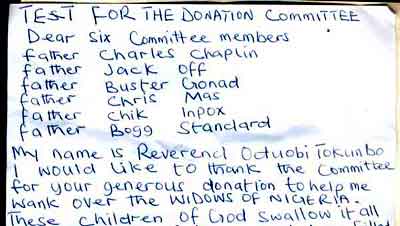 TEST FOR THE DONATION COMMITTEE
Dear Six Committee members
father Charles Chaplin
father Jack Off
father Buster Gonad
father Chris Mas
father Chik Inpox
father Bogg Standard
My name is Reverend Oduobi Tokunbo
I would like to thank the Committee
for your generous donation to help me
wank over the WIDOWS OF NIGERIA.
These children of God swallow it all